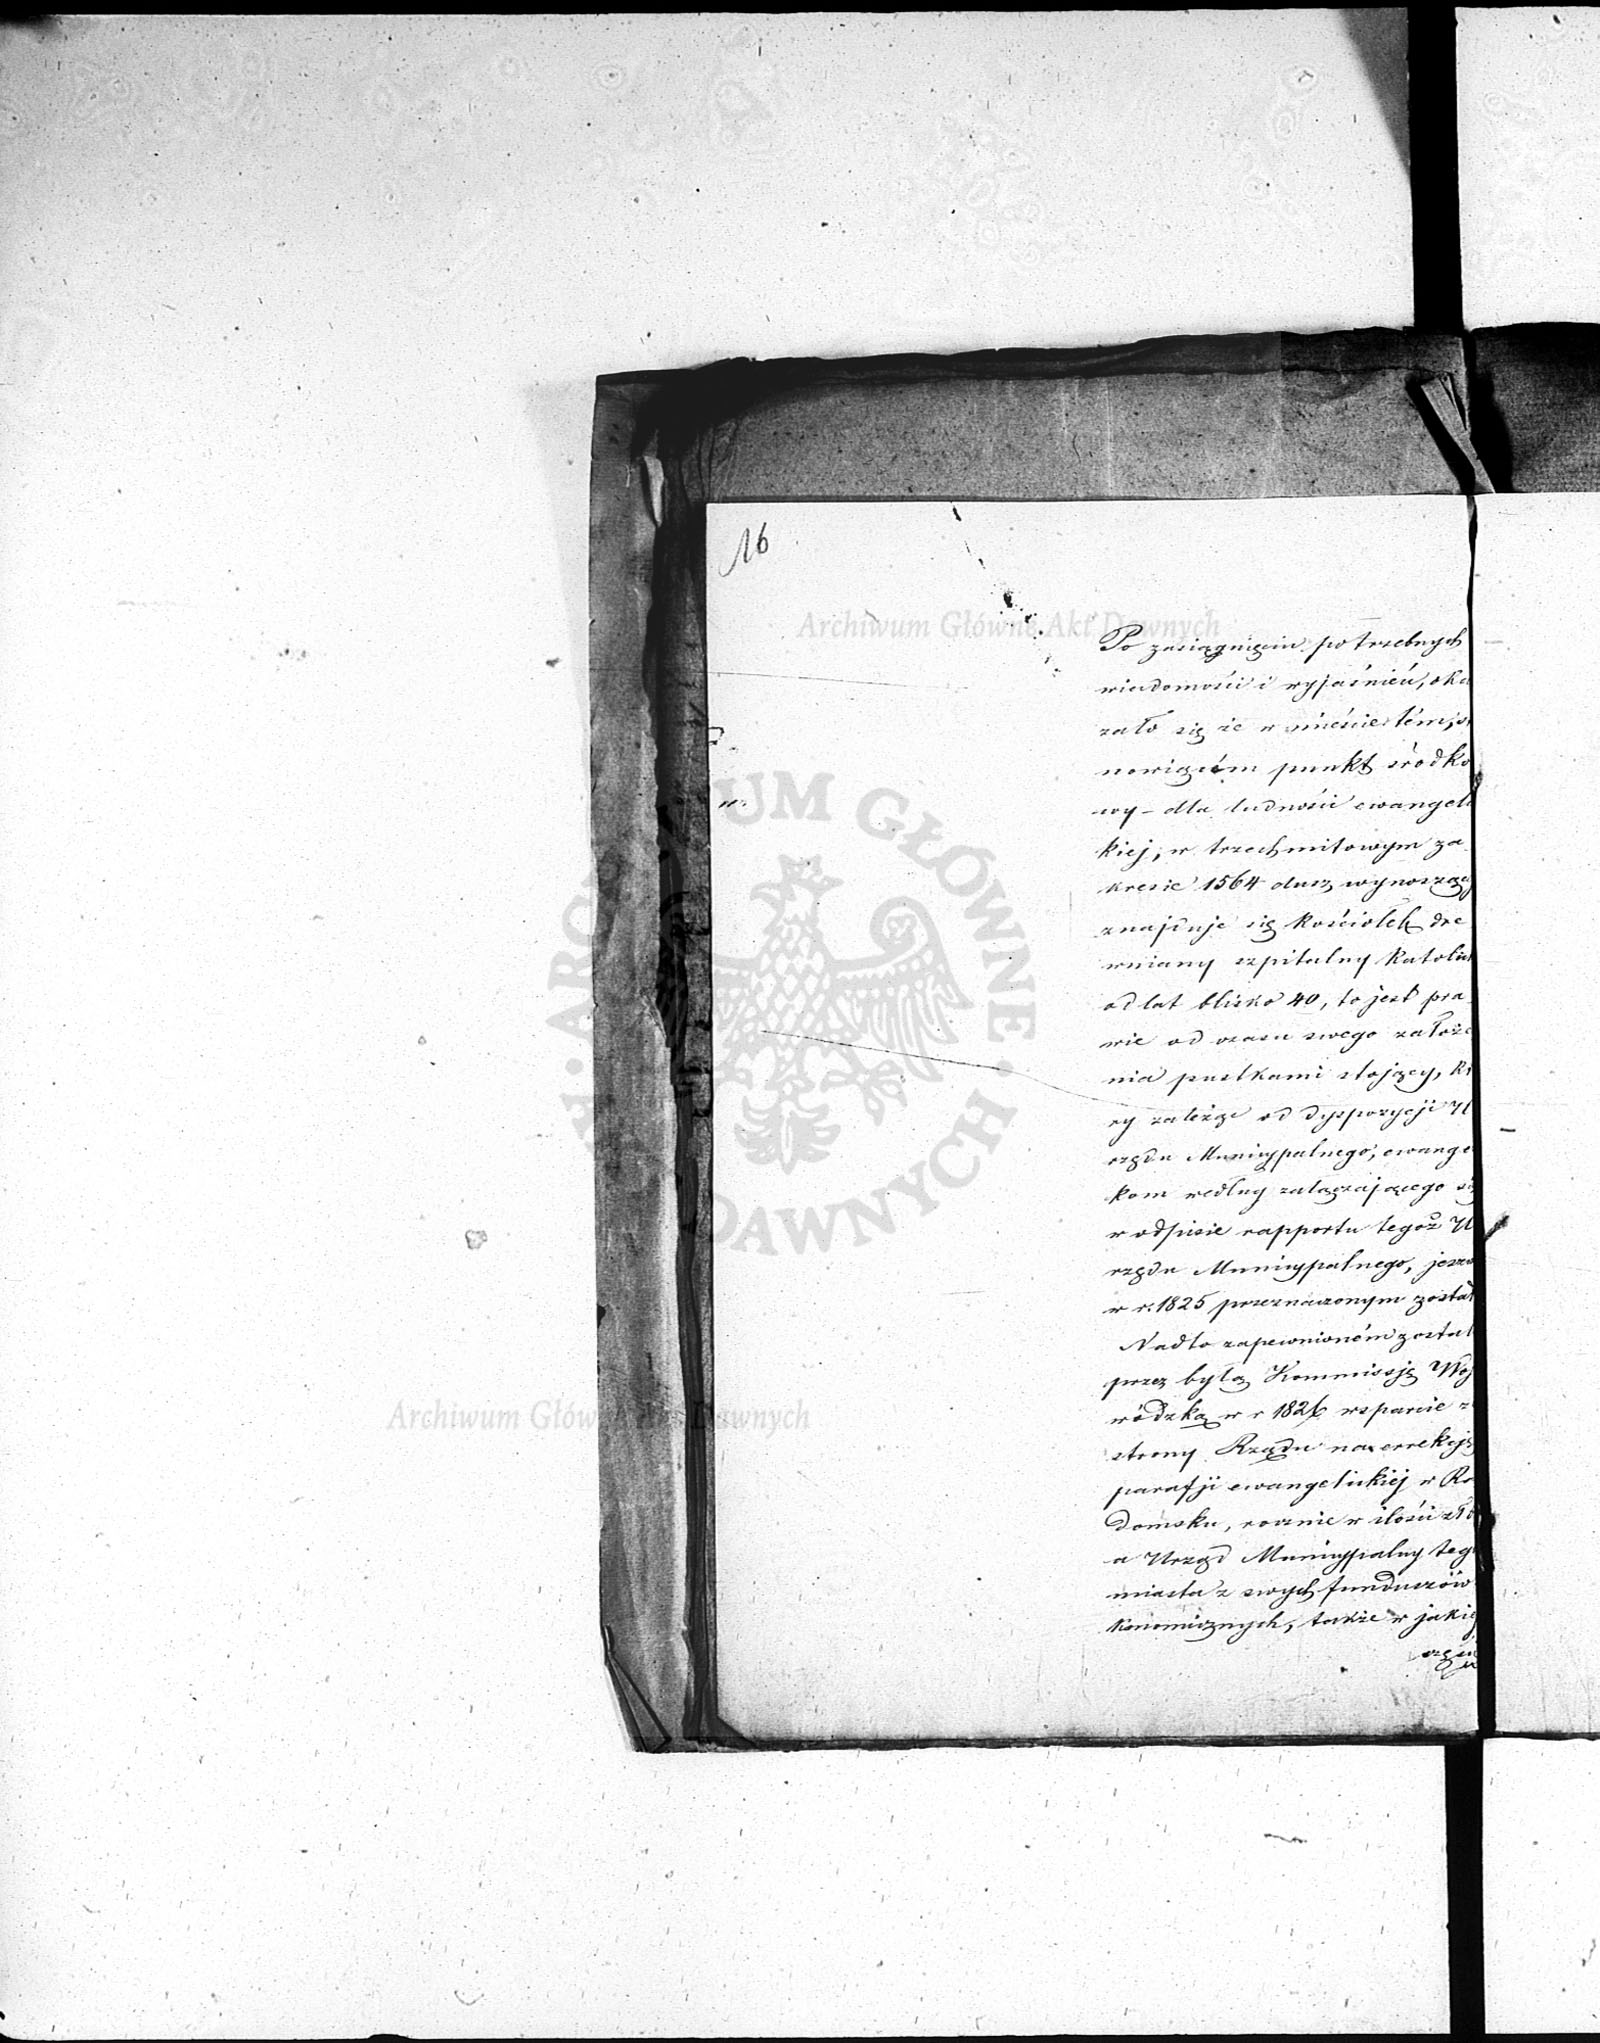 16
Po zasiągnięciu potrzebnych
wiadomości i wyjaśnień, oka
zało się że w mieście tém,
nowiącém punkt środko
wy – dla ludności ewangeli
kiej, w trzechmilowym za
kresie 1564 dusz wynoszącej
znajduje się Kościołek dre
wniany szpitalny Katolick
od lat blisko 40, to jest pra
wie od czasu swego założe
nia pustkami stojący, kt
ry zależąc od dyspozycji U
rzędu Municypalnego, ewange
kom według załączającego się
w odpisie rapportu tegoż U
rzędu Municypalnego, jeszcz
w r. 1825 przeznaczonym został
Nadto zapewnioném został
przez byłą Kommissję Woj
wódzką w r 1826 wsparcie z
strony Rządu na errekcję
parafji ewangelickiej w Ra
domsku, rocznie w ilości złp
a Urząd Municypalny teg
miasta z swych funduszów
konomicznych, także w jakiej
Archiwum Główne Akt Dawnych
Archiwum Główne Akt Dawnych
ARCHIWUM GŁÓWNE AKT DAWNYCH